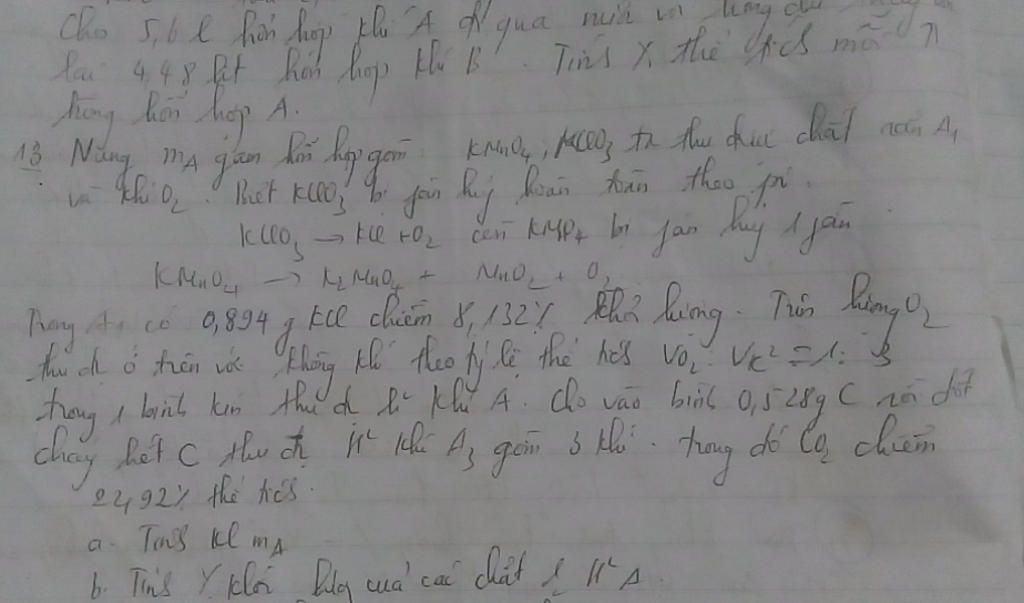 Cho 5,6 l hỗn hợp khí A đi qua
lại 4,48 lít hỗn hợp khí B. Tính % thể tích mỗi
trong hỗn hợp A.
13 Nung mA gam hỗn hợp gồm KMnO4, KClO3 ta thu được chất rắn A1
và khí O2. Biết KClO3 bị phân huỷ hoàn toàn theo pt.
KClO3 → KCl + O2 còn KMnO4 bị phân huỷ 1 phần
KMnO4 → K2MnO4 + MnO2 + O2
Trong A1 có 0,894 g KCl chiếm 8,132% khối lượng. Trộn lượng O2
thu đc ở trên với không khí theo tỷ lệ thể tích VO2 : VK2 = 1 : 3
trong 1 bình kín thu đc h2 khí A. Cho vào bình 0,528g C rồi đốt
cháy hết C thu đc h2 khí A3 gồm 3 khí. trong đó CO2 chiếm
22,92% thể tích.
a. Tính kl mA
b. Tính % khối lượng của các chất h2 A.